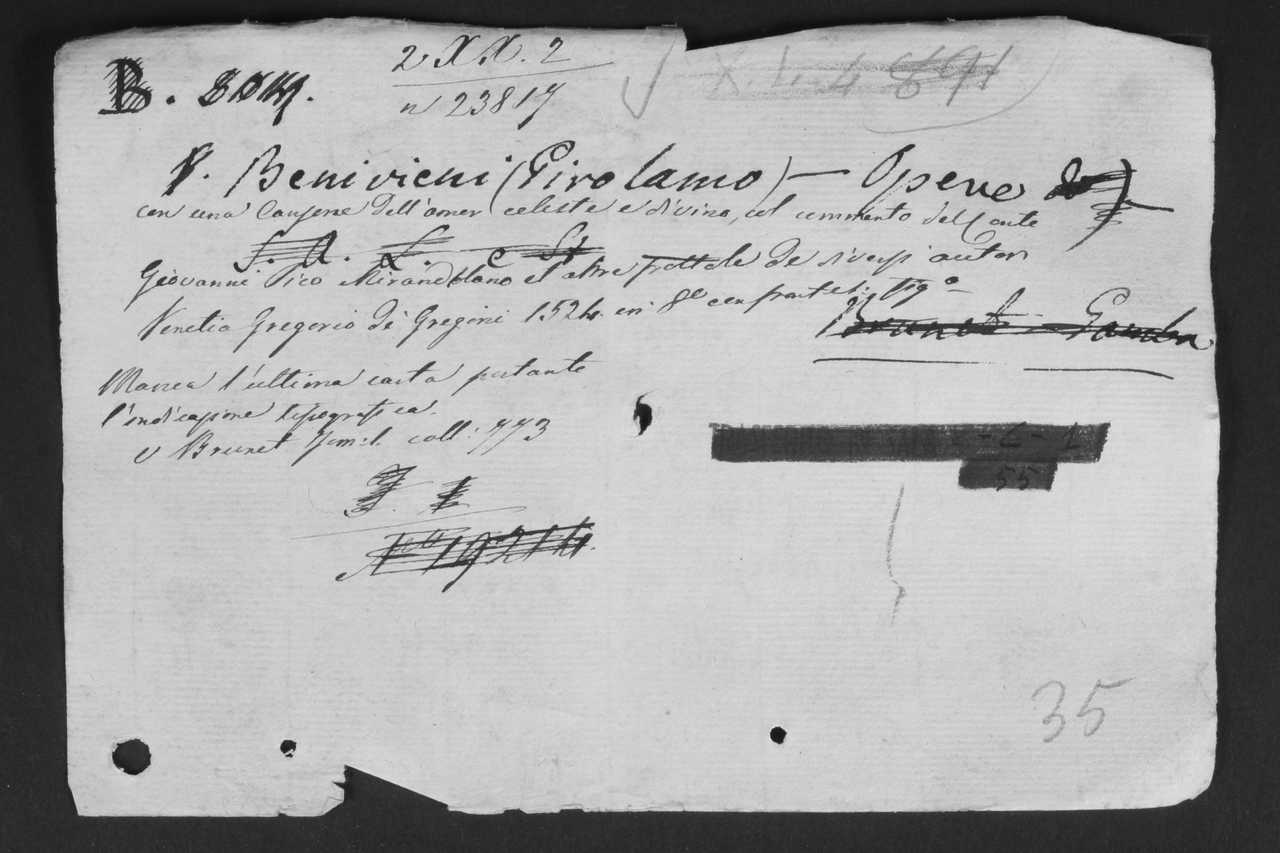 B.
2 XX. 2
n 23817
X. L. 4
Benivieni (Girolamo) — Opere
con una Canzone dell'amor celeste e divino, col commento del Conte
S. A. L.
Giovanni Pico Mirandolano et altre frottole de diversi autori
Venetia Gregorio de Gregori 1524. in 8º con frontesp. figº
Brunet Gamba
Manca l'ultima carta portante
l'indicazione tipografica.
v Brunet Tom: I. coll: 773
Nº 19214.
55
35